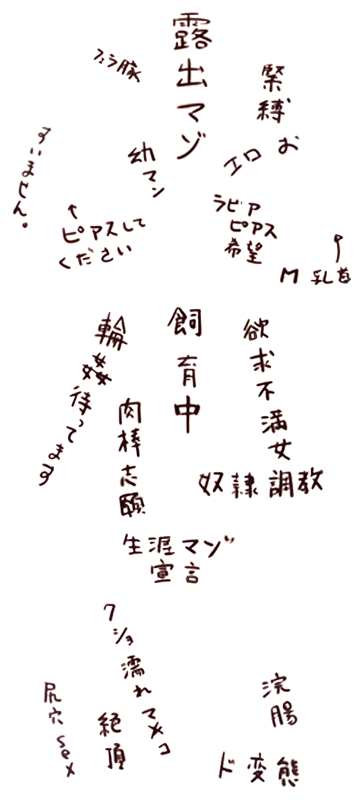 露出マゾ
フェラ豚
緊縛
エロ
お
幼マン
すいません。
↑
ピアスして
ください
ラビア
ピアス
希望
M 乳首
飼育中
輪姦待ってます
欲求不満女
肉棒志願
奴隷調教
生涯マゾ
宣言
グショ濡れマメコ
尻穴sex
絶頂
浣腸
ド変態